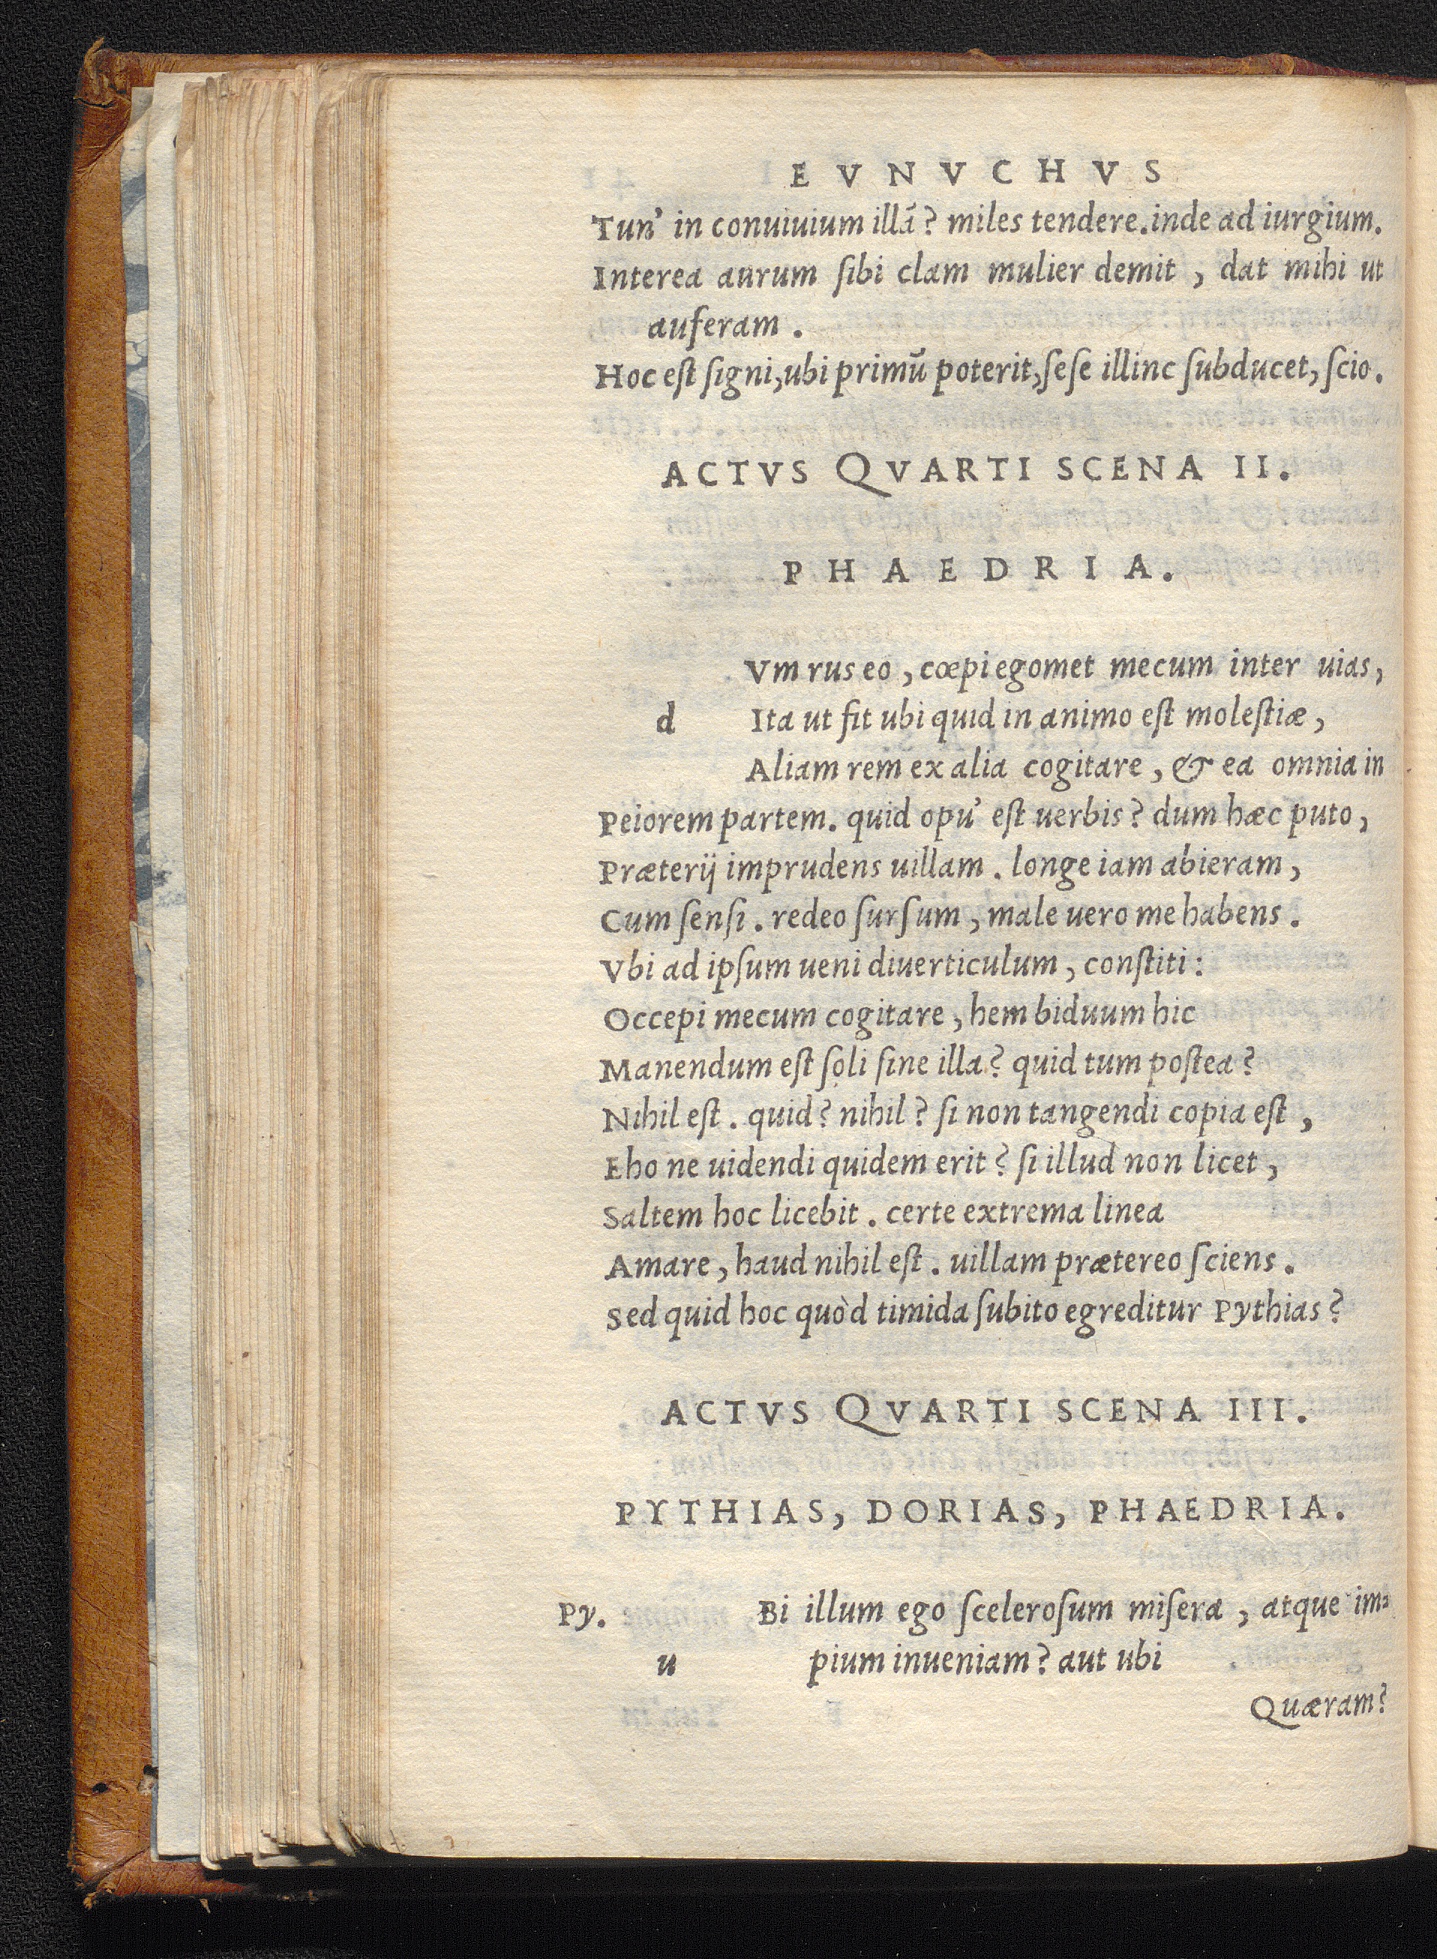 EVNVCHVS
Tun' in conuiuium illã? miles tendere.inde ad iurgium.
Interea aurum ſibi clam mulier demit, dat mihi ut
auferam.
Hoc eſt ſigni,ubi primũ poterit,ſeſe illinc ſubducet, ſcio.
ACTVS QVARTI SCENA II.
PHAEDRIA.
Vm rus eo, cœpi egomet mecum inter uias,
d Ita ut fit ubi quid in animo eſt moleſtiæ,
Aliam rem ex alia cogitare, & ea omnia in
Peiorem partem. quid opu' eſt uerbis? dum hæc puto,
Præterij imprudens uillam. longe iam abieram,
Cum ſenſi. redeo ſurſum, male uero me habens.
Vbi ad ipſum ueni diuerticulum, conſtiti:
Occepi mecum cogitare, hem biduum hic
Manendum eſt ſoli ſine illa? quid tum poſtea?
Nihil eſt. quid? nihil? ſi non tangendi copia eſt,
Eho ne uidendi quidem erit? ſi illud non licet,
Saltem hoc licebit. certe extrema linea
Amare, haud nihil eſt. uillam prætereo ſciens.
Sed quid hoc quòd timida ſubito egreditur Pythias?
ACTVS QVARTI SCENA III.
PYTHIAS, DORIAS, PHAEDRIA.
Py. Bi illum ego ſceleroſum miſera, atque im-
u pium inueniam? aut ubi
Quæram?